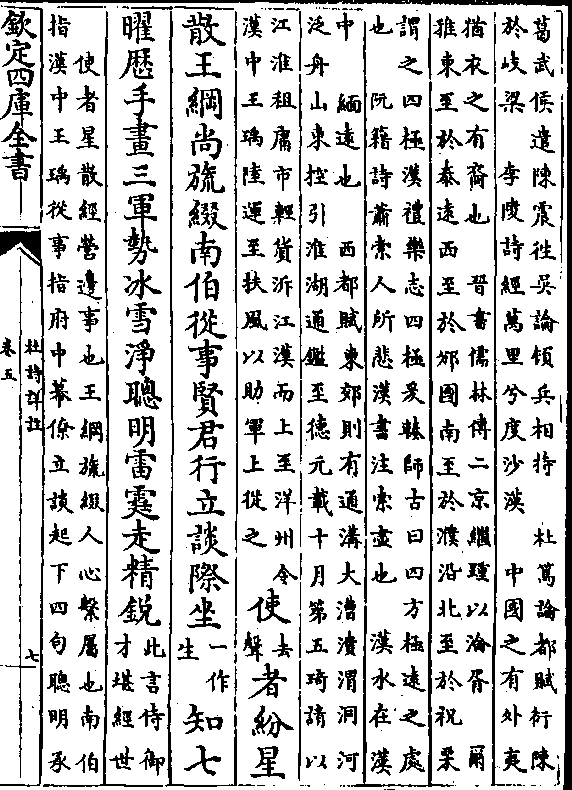 葛武侯遣陳震徃吳論領兵相持　杜篤論都賦衍陳
於岐梁　李陵詩經萬里兮度沙漠　中國之有外夷
猶衣之有裔也　晉書儒林傳二京繼踵以淪胥　爾
雅東至於泰遠西至於邠國南至於濮沿北至於祝栗
謂之四極漢禮樂志四極爰轃師古曰四方極遠之處
也　阮籍詩蕭索人所悲漢書注索盡也　漢水在漢
中　緬遠也　西都賦東郊則有通溝大漕潰渭洞河
泛舟山東控引淮湖通鑑至徳元載十月第五琦請以
江淮租庸市輕貨泝江漢而上至洋州令
漢中王瑀陸運至扶風以助軍上從之
使去聲者紛星
散王綱尚旒綴南伯從事賢君行立談際坐一作生知七
曜厯手畫三軍勢冰雪淨聰明雷霆走精銳此言侍御
才堪經世
使者星散經營邊事也王綱旒綴人心繫屬也南伯
指漢中王瑀從事指府中幕僚立談起下四句聰明承
欽定四庫全書
杜詩詳註
卷五
七